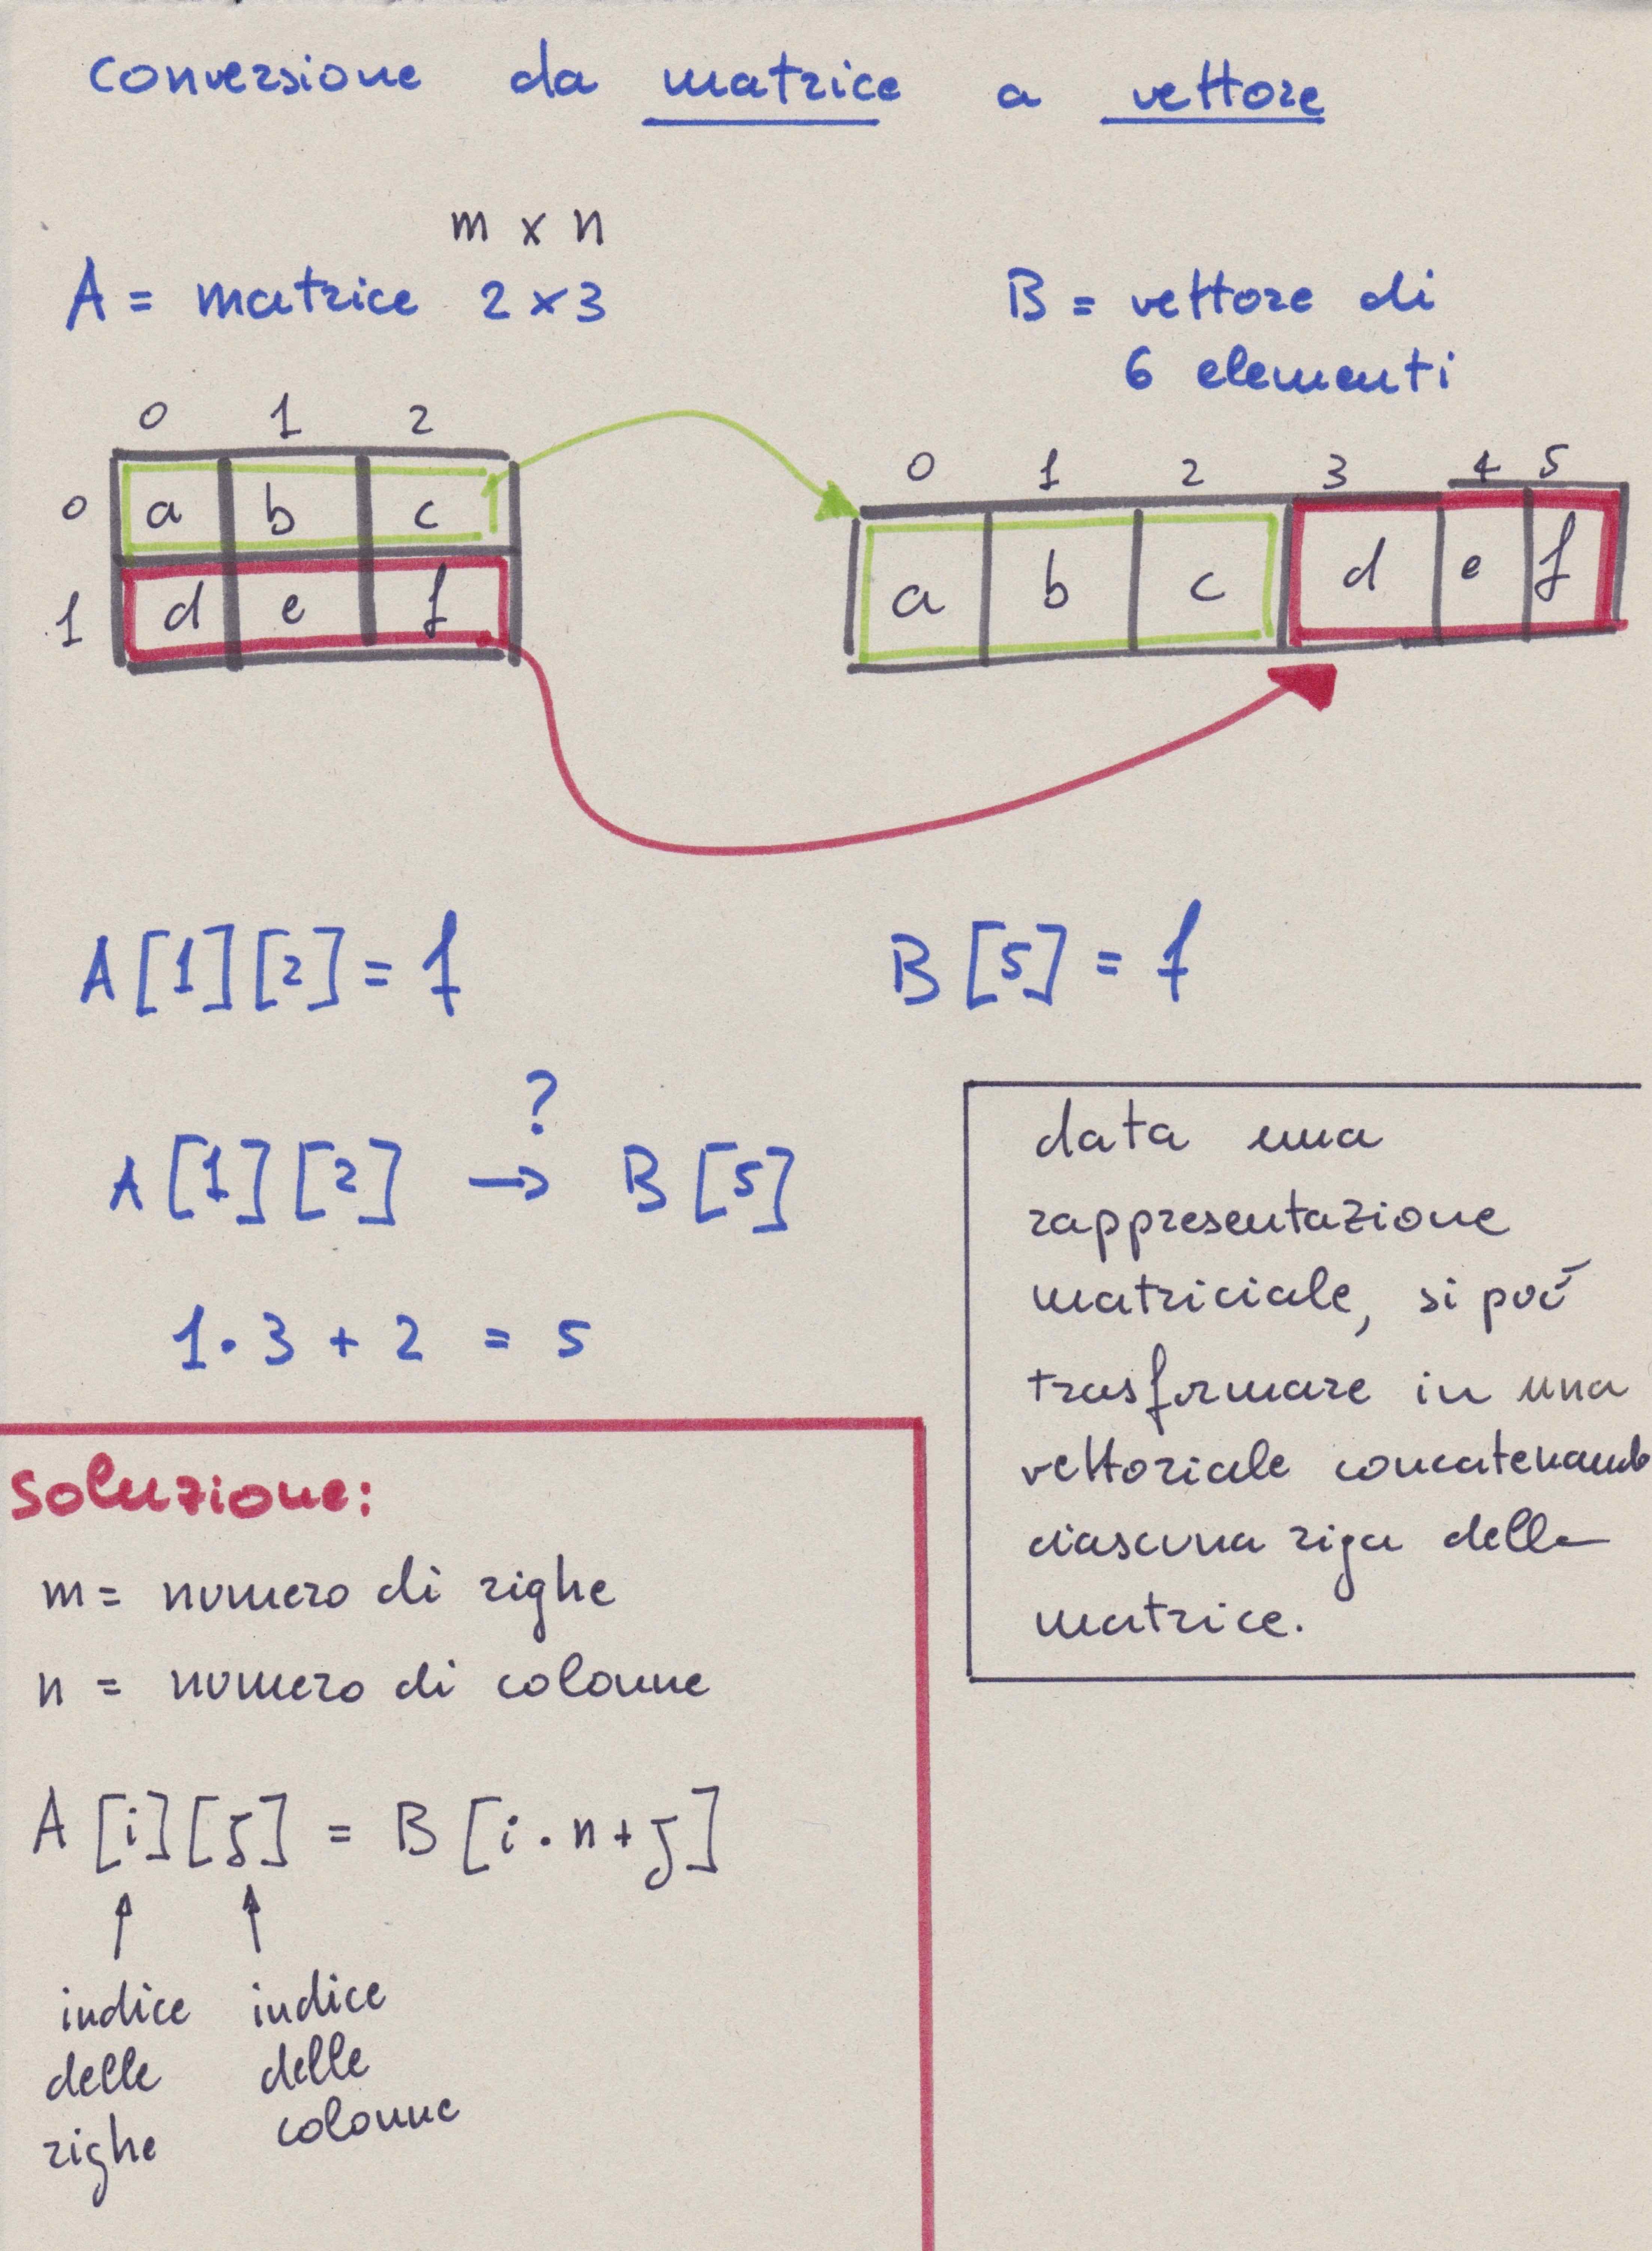 conversione da matrice a vettore
m x n
A = matrice 2 x 3
B = vettore di
6 elementi
0 1 2
0 a b c
1 d e f
0 1 2 3 4 5
a b c d e f
A[1][2] = f
B[5] = f
?
A[1][2] → B[5]
1·3 + 2 = 5
data una
rappresentazione
matriciale, si può
trasformare in una
vettoriale concatenando
ciascuna riga della
matrice.
soluzione:
m = numero di righe
n = numero di colonne
A[i][j] = B[i·n+j]
↑ ↑
indice indice
delle delle
righe colonne